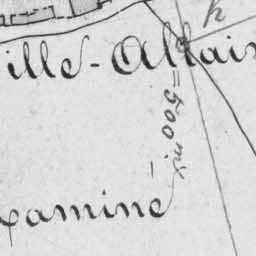 k
ille-Allai
= 500 m.
xamine